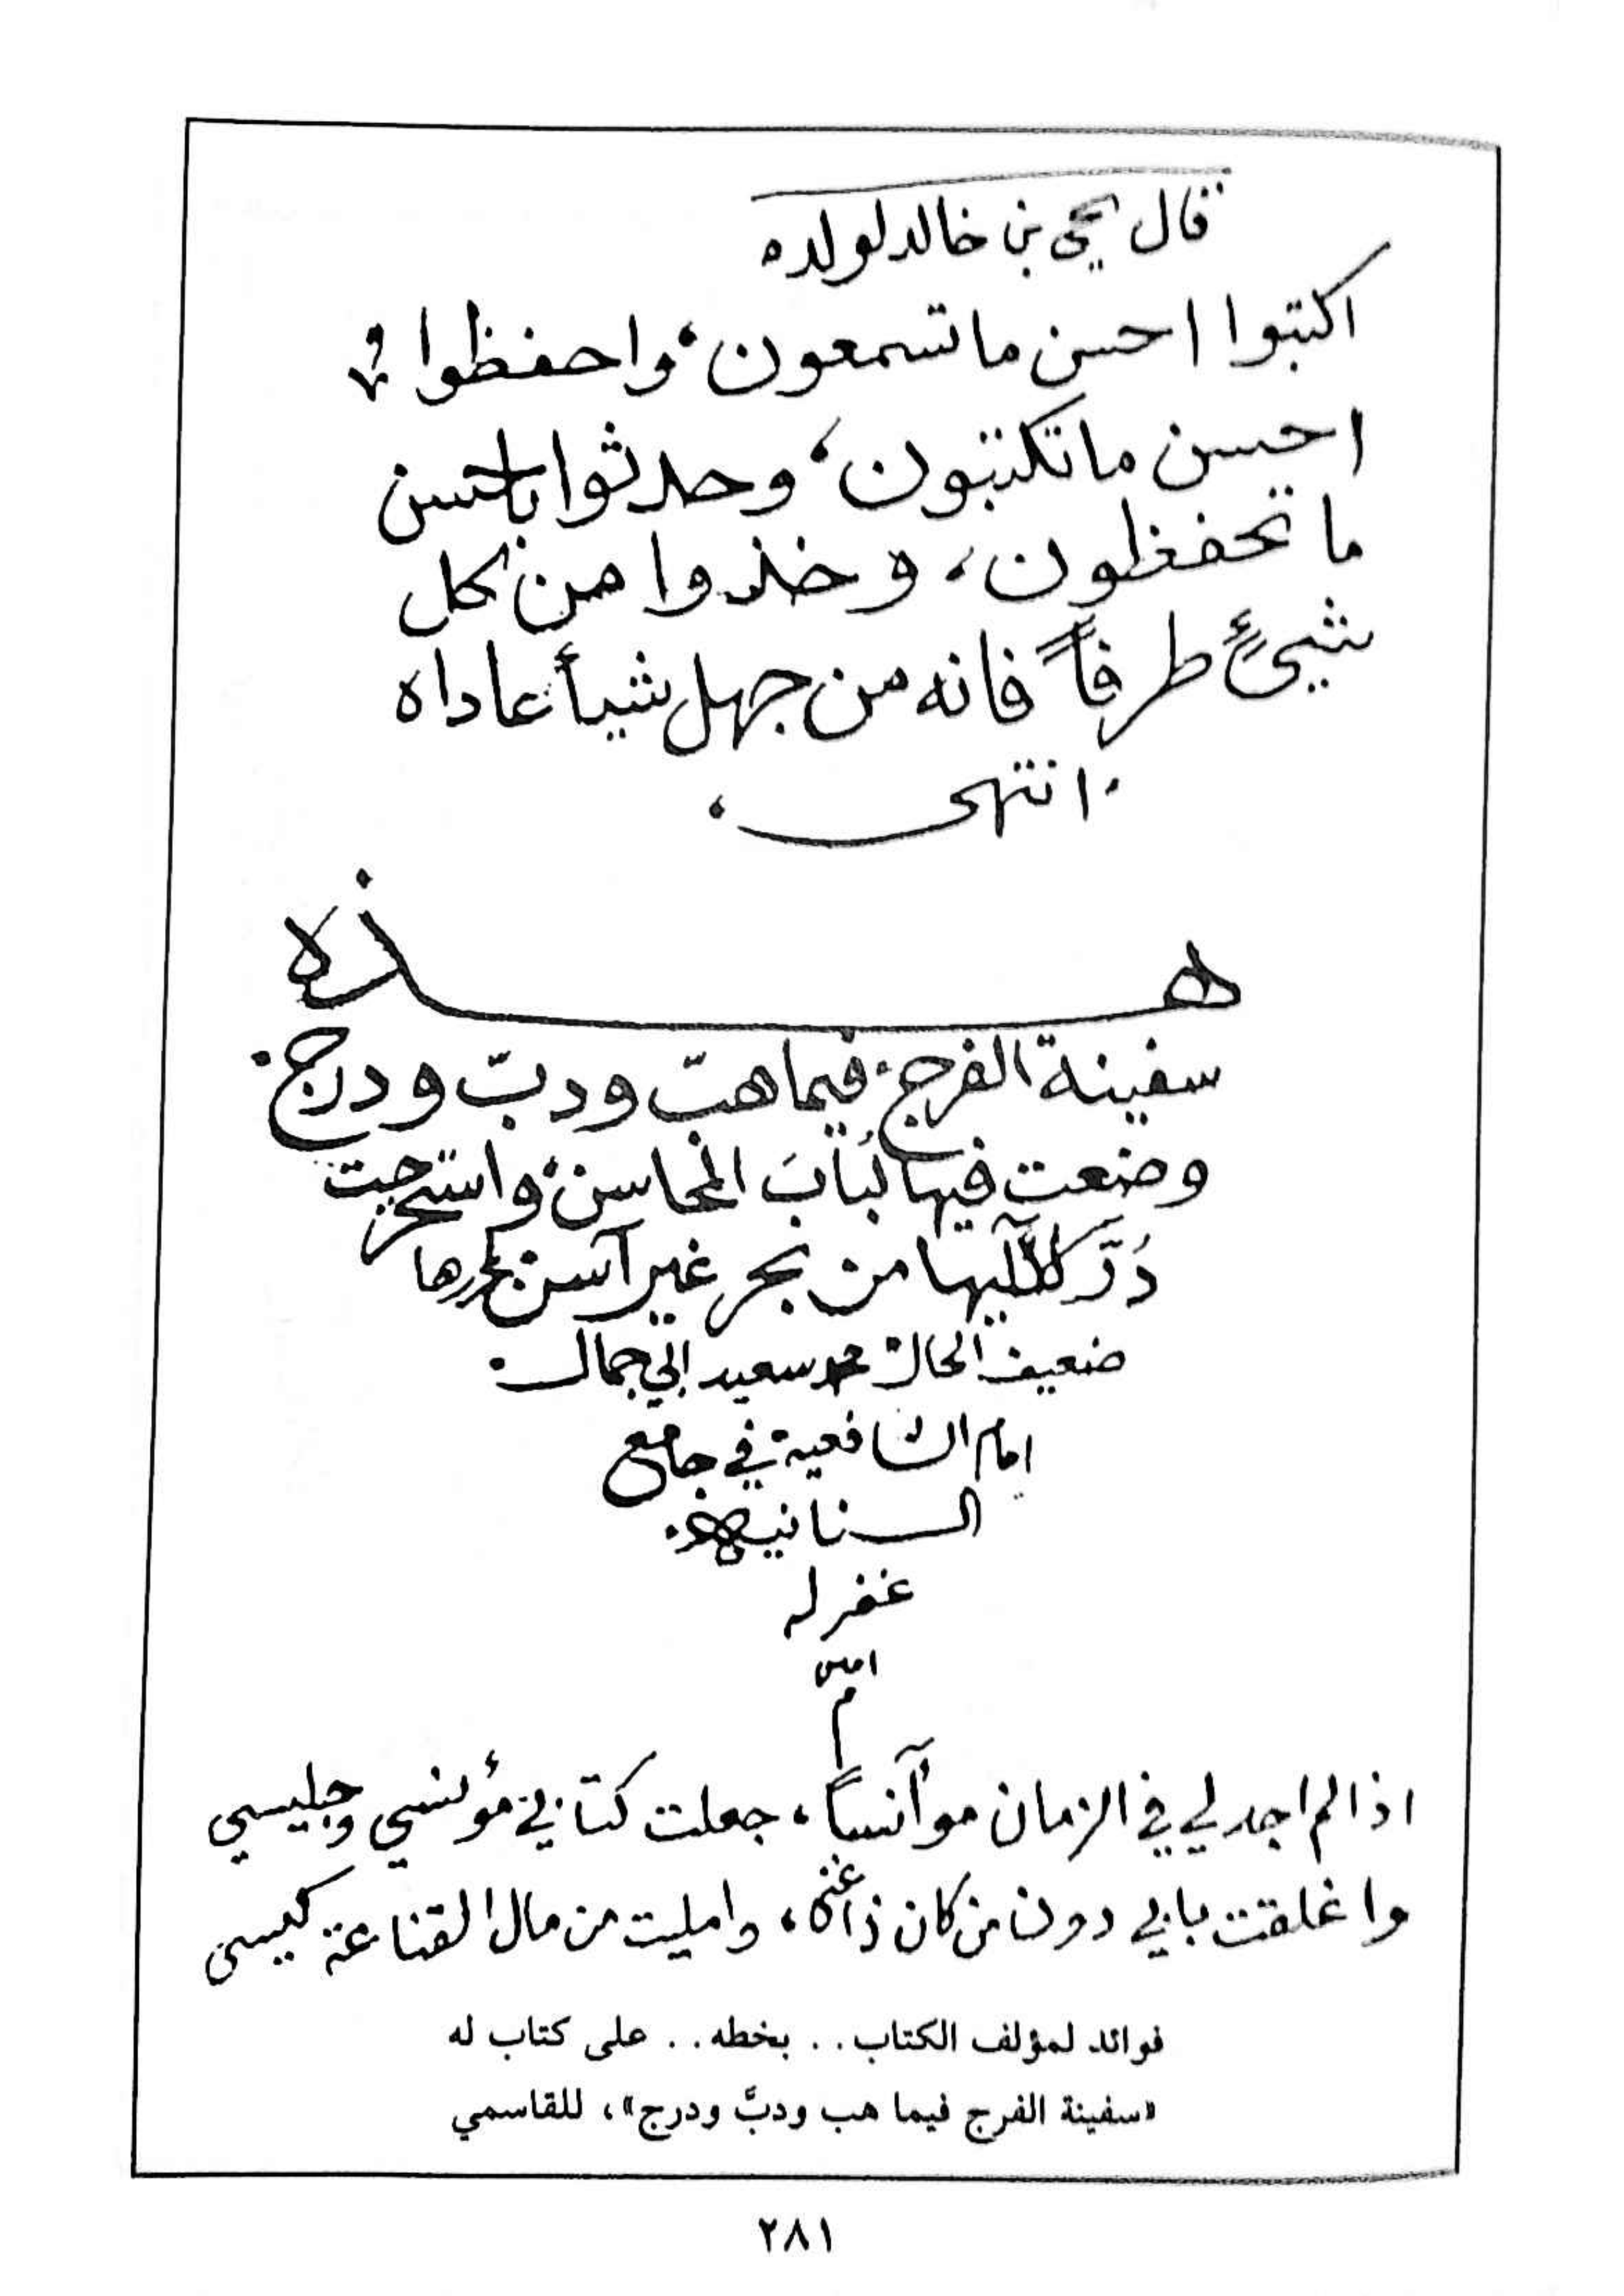 قال يحيى بن خالد لولده
اكتبوا احسن ما تسمعون، واحفظوا
احسن ما تكتبون، وحدثوا باحسن
ما تحفظون، وخذوا من كل
شيئٍ طرفاً فانه من جهل شيأ عاداه
انتهى.
هذه
سفينة الفرج. فيما هبّ ودبّ ودرج.
وضعت فيها لُبابَ المحاسن، واستخرجت
دُرَّ لآليها من بحر غير آسن
ضعيف الحال محمد سعيد ابي جمال.
امام الشافعية في جامع
السنانيه.
غفر له
امين
م
اذا لم اجد لي في الزمان موآنساً، جعلت كتابي مؤنسي وجليسي
واغلقت بابي دون من كان ذا غنى، وامليت من مال القناعة كيسي
فوائد لمؤلف الكتاب.. بخطه.. على كتاب له
«سفينة الفرج فيما هب ودبَّ ودرج»، للقاسمي
٢٨١